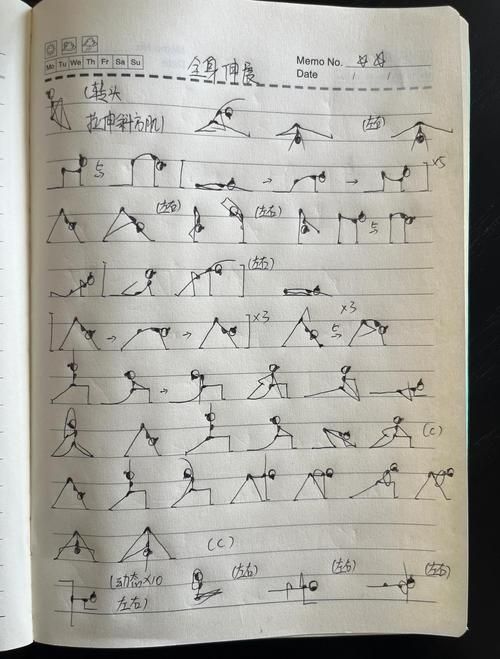 全身伸展
Memo No. 女女
Mo Tu We Th Fr Sa Su
Date / /
(转头
拉伸斜方肌)
(左右)
与
×5
(左右) (左右) 与
(左右)
×3 与 ×3
(C)
(C)
(动态×10
左右)
(左右) (左右) (左右)